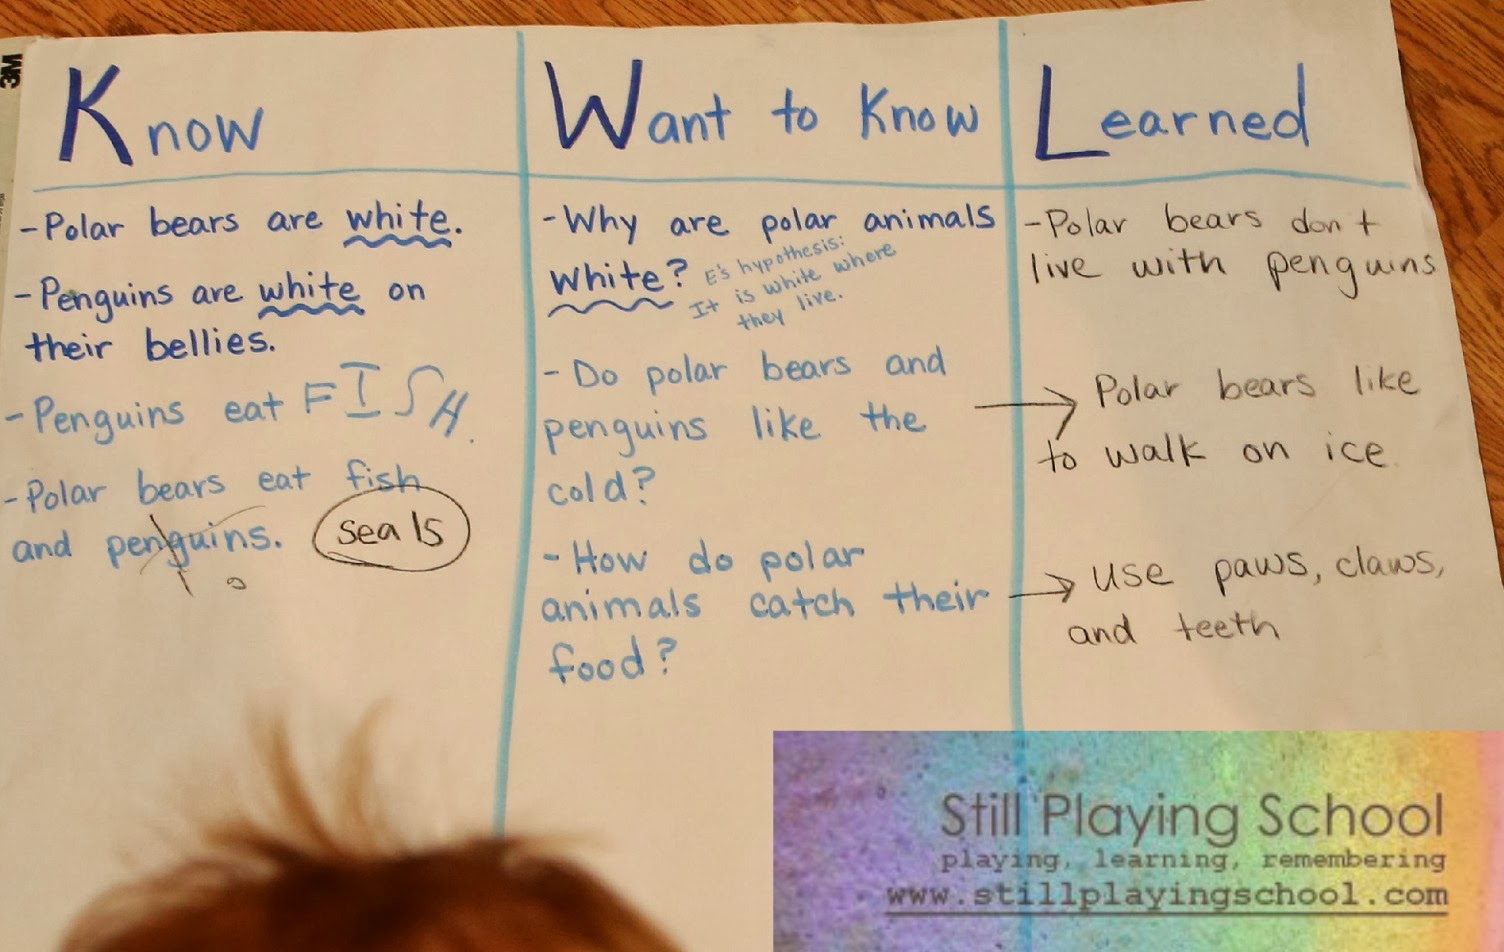 3M
Know
- Polar bears are white.
- Penguins are white on
their bellies.
- Penguins eat FISH.
- Polar bears eat fish
and penguins. seals
Want to Know
- Why are polar animals
white? E's hypothesis:
It is white where
they live.
- Do polar bears and
penguins like the
cold?
- How do polar
animals catch their
food?
Learned
- Polar bears don't
live with penguins
→ Polar bears like
to walk on ice
→ use paws, claws,
and teeth
Still Playing School
playing, learning, remembering
www.stillplayingschool.com